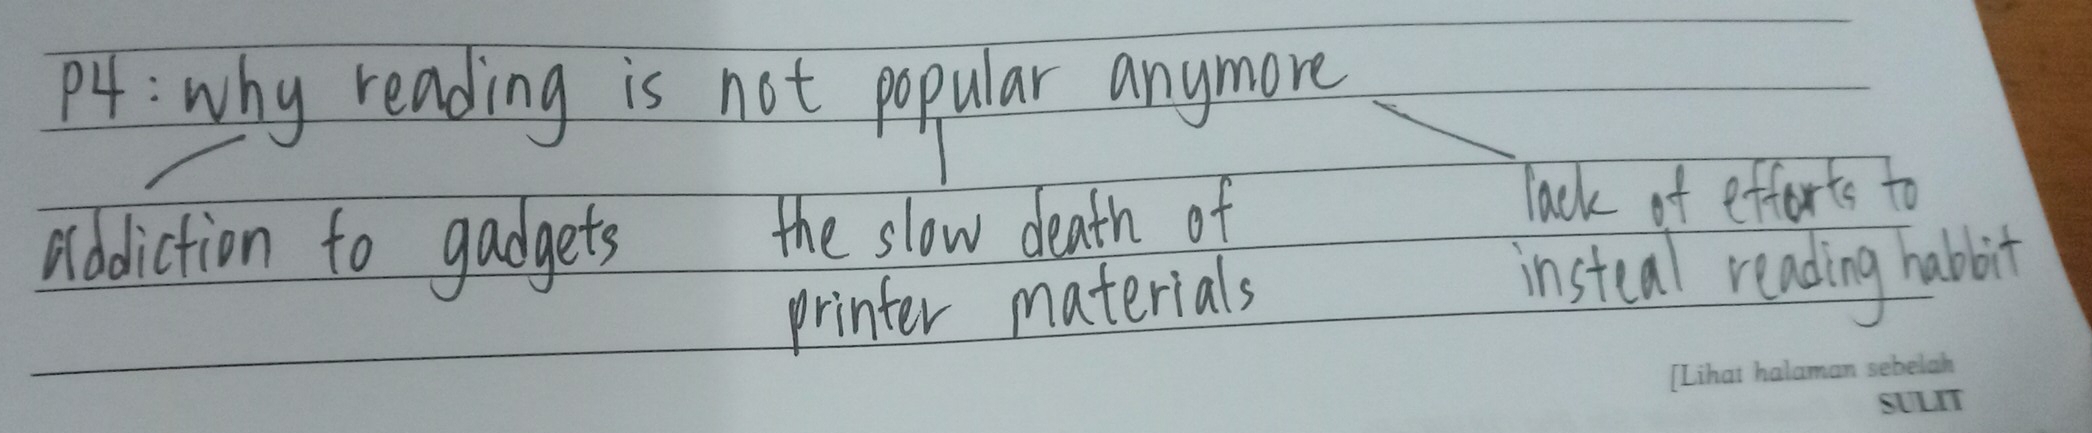 P4 : why reading is not popular anymore
addiction to gadgets
the slow death of
printer materials
lack of efforts to
insteal reading habbit
[Lihat halaman sebelah
SULIT